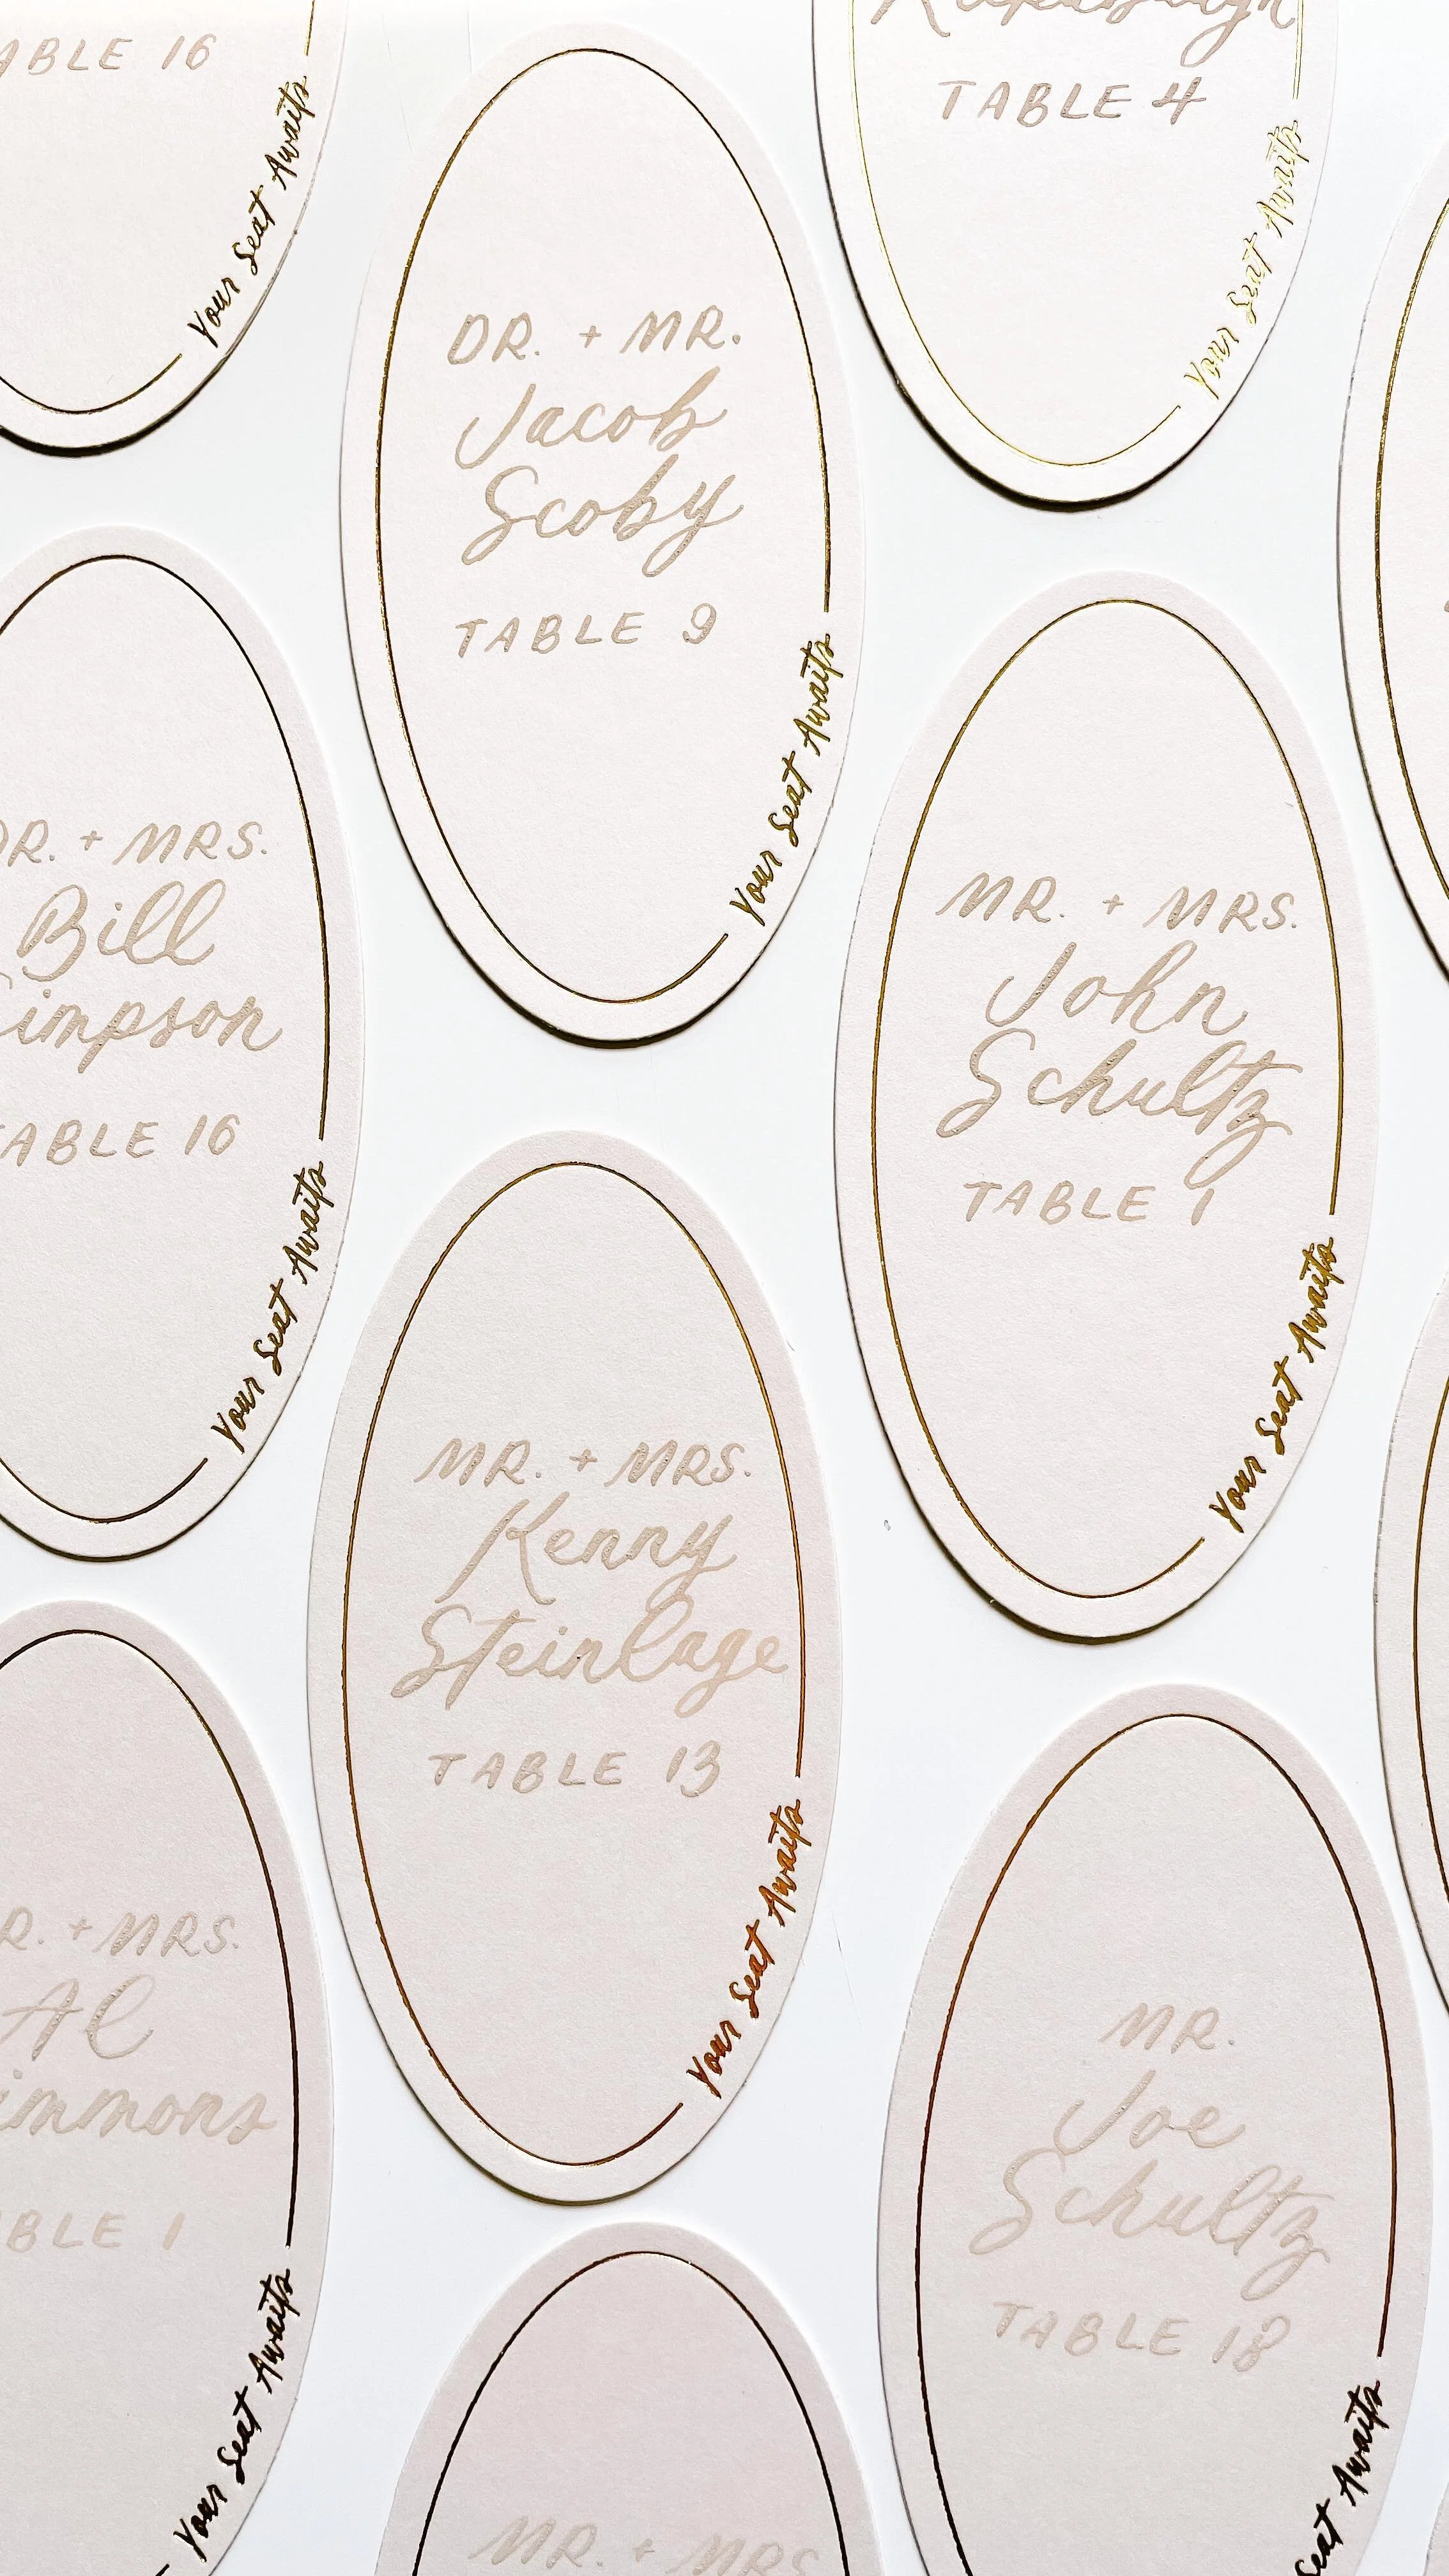 TABLE 16
Your Seat Awaits
TABLE 4
Your Seat Awaits
DR. + MR.
Jacob
Scoby
TABLE 9
Your Seat Awaits
DR. + MRS.
Bill
impson
TABLE 16
Your Seat Awaits
MR. + MRS.
John
Schultz
TABLE 1
Your Seat Awaits
MR. + MRS.
Kenny
Steinlage
TABLE 13
Your Seat Awaits
R. + MRS.
Al
immons
BLE 1
Your Seat Awaits
MR.
Joe
Schultz
TABLE 18
Seat Awaits
MR. + MRS